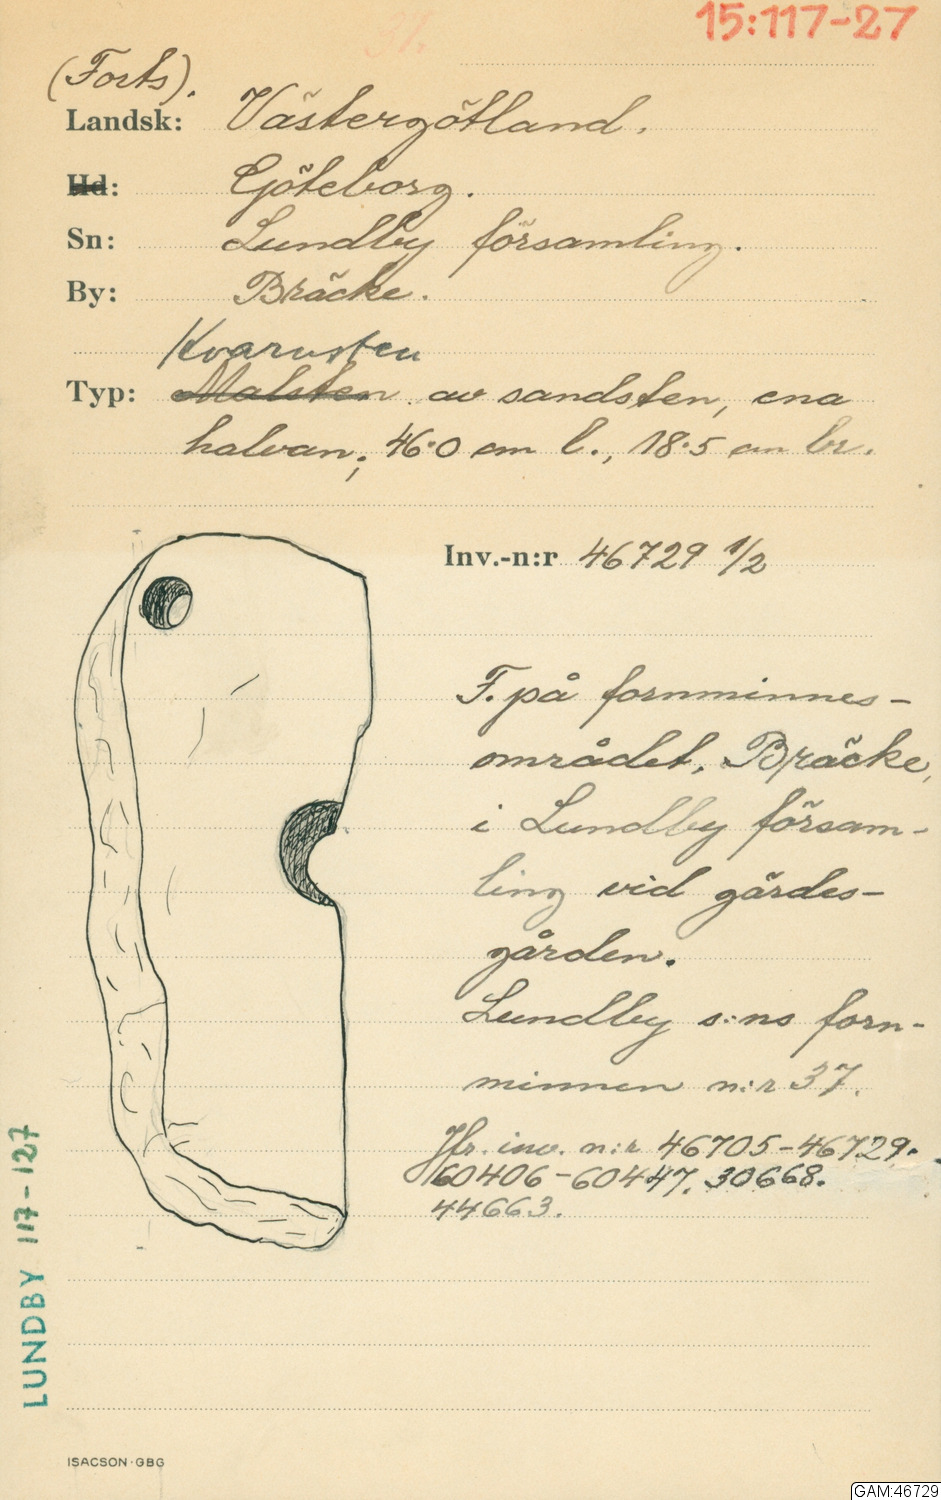 15:117-27
31.
(Forts).
Landsk: Västergötland.
Hd: Göteborg.
Sn: Lundby församling.
By: Bräcke.
Kvarnsten
Typ: Malsten av sandsten, ena
halvan; 46·0 cm l., 18·5 cm br.
Inv.-n:r 46729 1/2
F. på fornminnes-
området, Bräcke,
i Lundby försam-
ling vid gärdes-
gården.
Lundby s:ns forn-
minnen n:r 37.
Jfr. inv. n:r 46705-46729.
60406-60447. 30668.
44663.
LUNDBY 117-127
ISACSON·GBG
GAM:46729